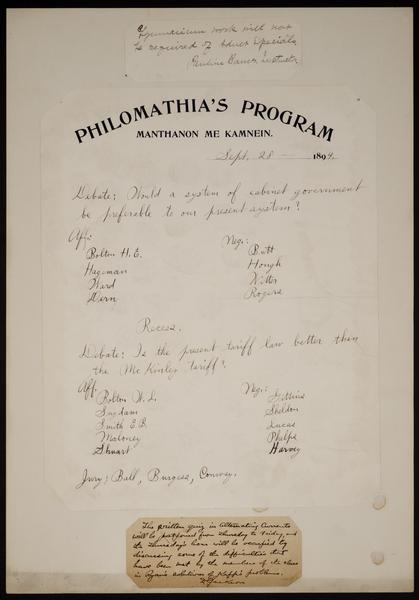 Gymnasium work will not
be required of Adult Specials.
Instructor
PHILOMATHIA'S PROGRAM
MANTHANON ME KAMNEIN.
Sept. 28 — 1894.
Debate: Would a system of cabinet government
be preferable to our present system?
Aff:
Neg:
Bolton H. E.
Butt
Hageman
Hough
Ward
Witter
Stern
Rogers
Recess.
Debate: Is the present tariff law better than
the McKinley tariff?
Aff.
Neg:
Bolton W. L.
Gittins
Suydam
Sheldon
Smith E. B.
Lucas
Maloney
Phelps
Stuart
Harvey
Jury: Ball, Burgess, Conway.
The written quiz in Alternating Currents
will be postponed from Thursday to Friday, and
the Thursday's hour will be occupied by
discussing some of the difficulties that
have been met by the members of the class
in Ryan's solution of Kapp's problems.
D. C. Jackson